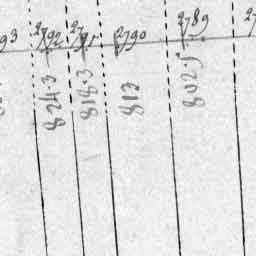 2792
2791
2790
2789
824.3
818.3
813
802.5